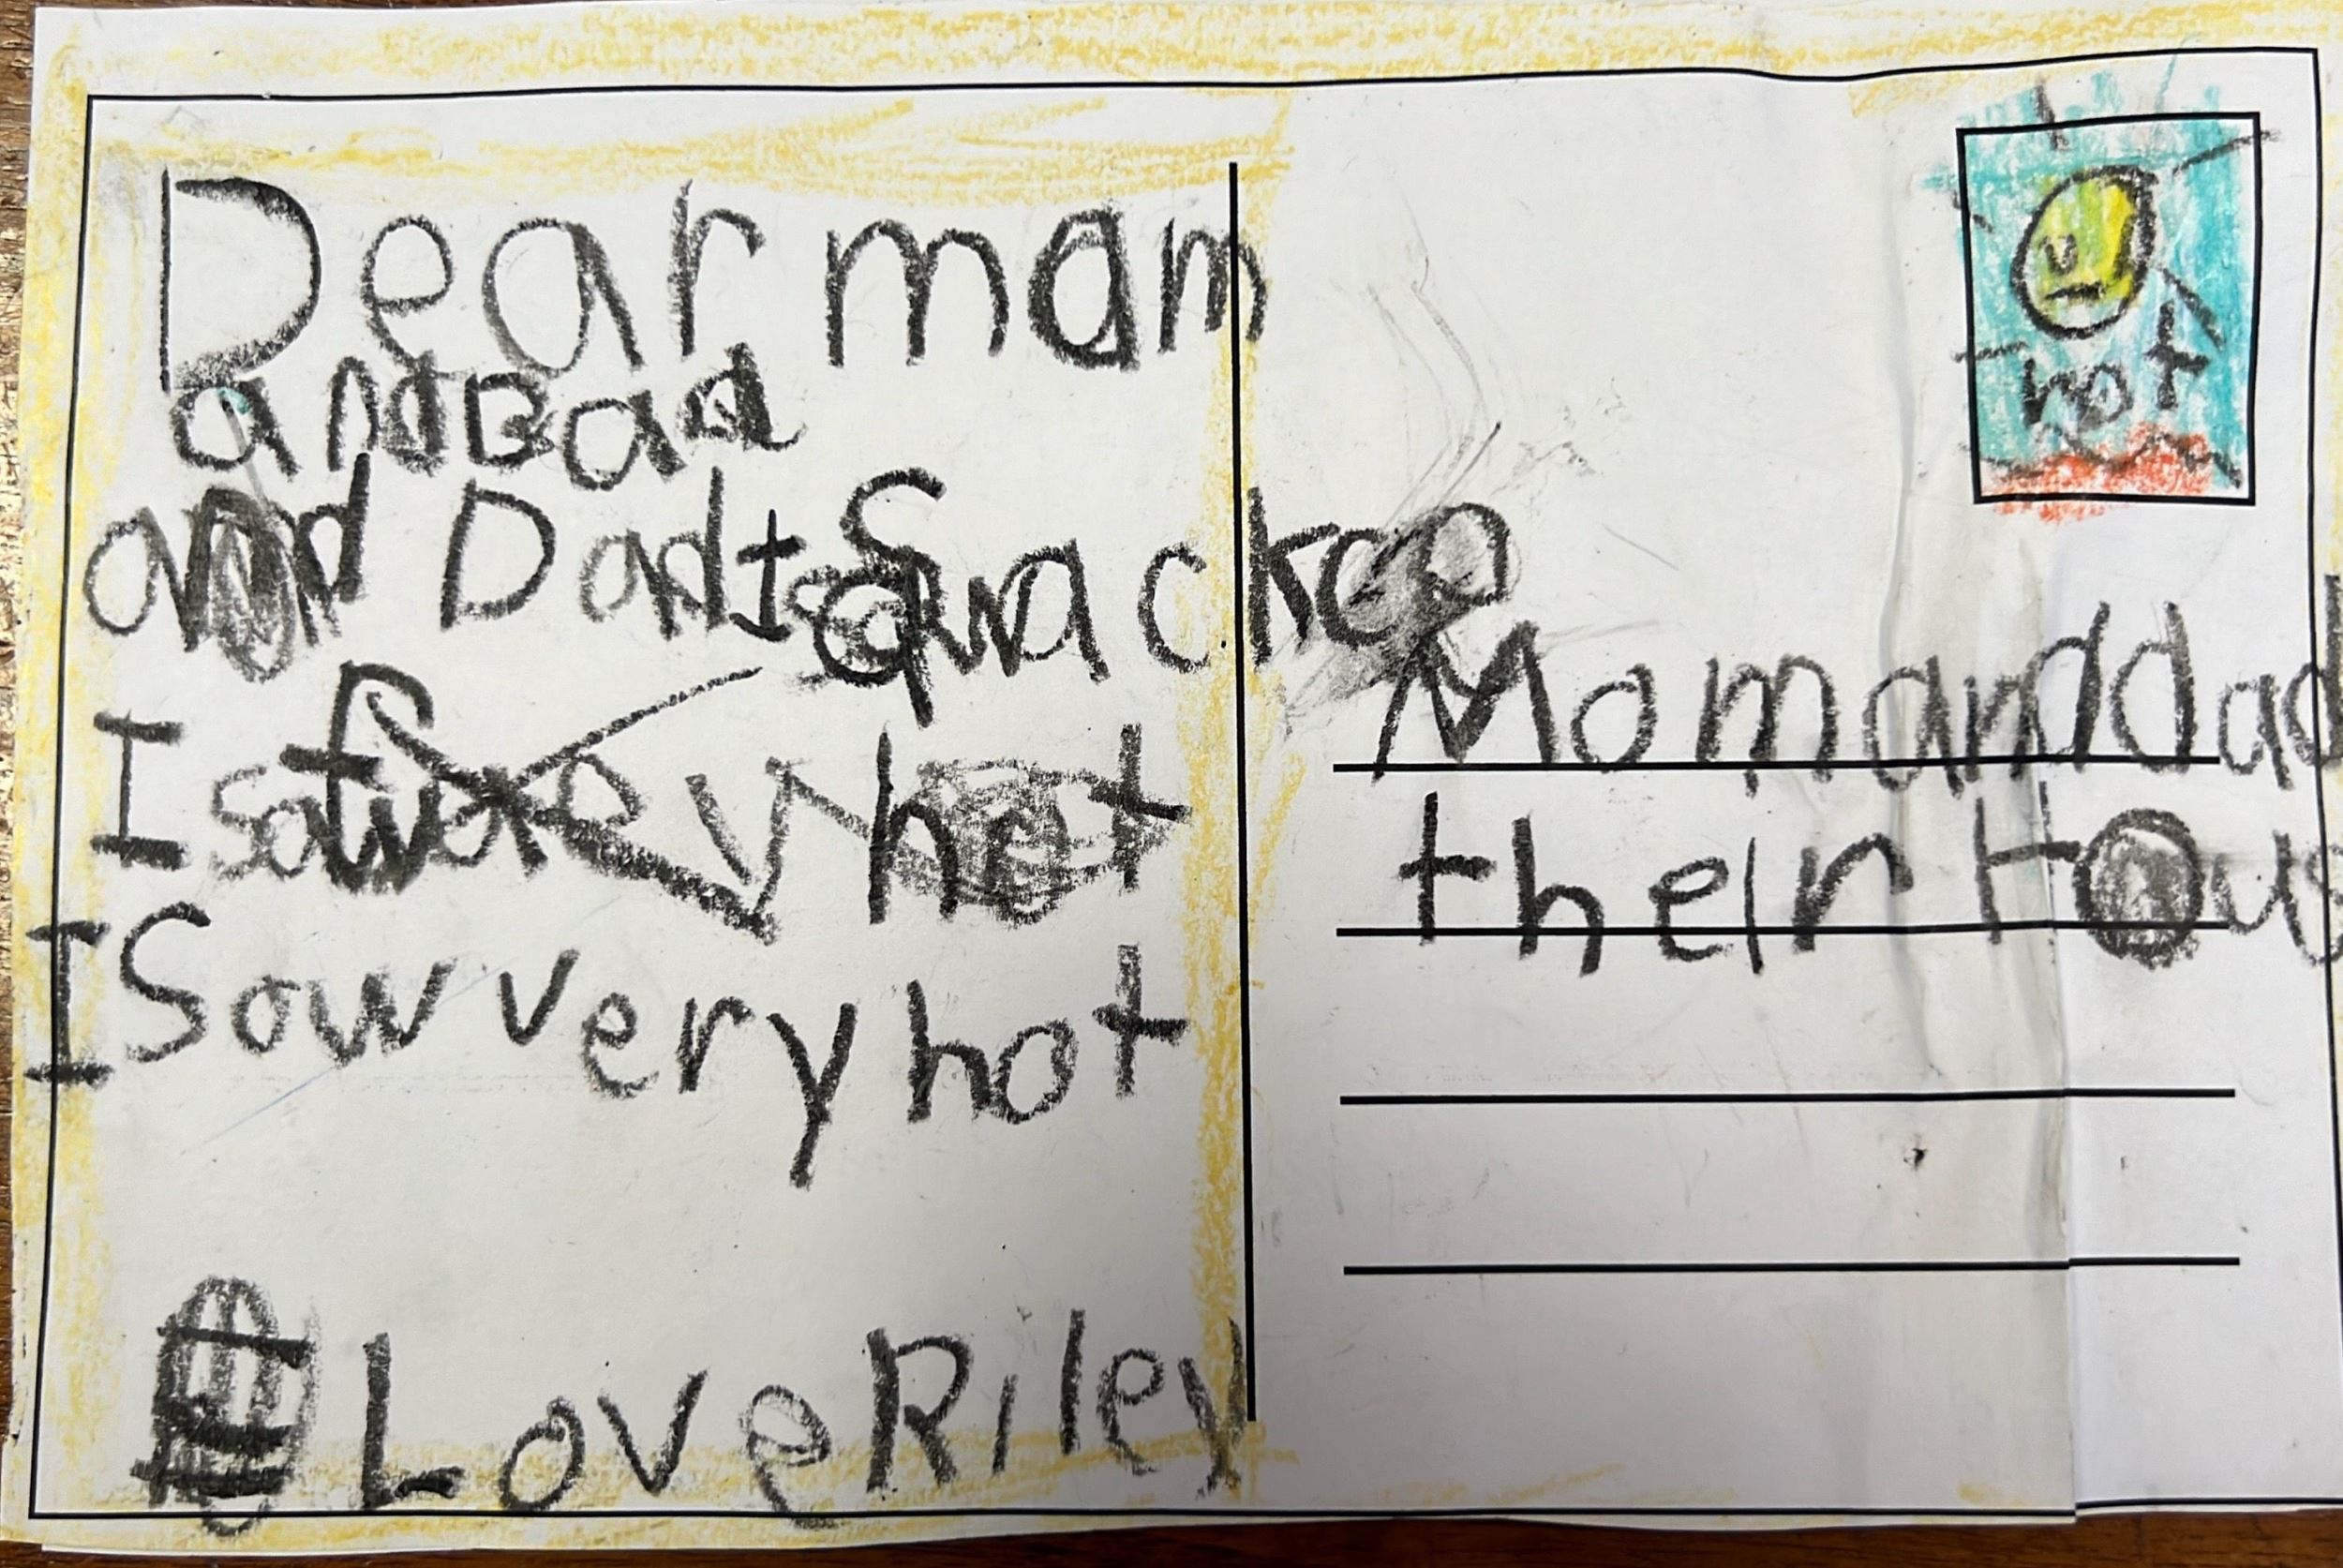 Dear mam
and Dad
and Dad
I
very hot
I Sow very hot
Love Riley
hot
Mom and dad
their Hous